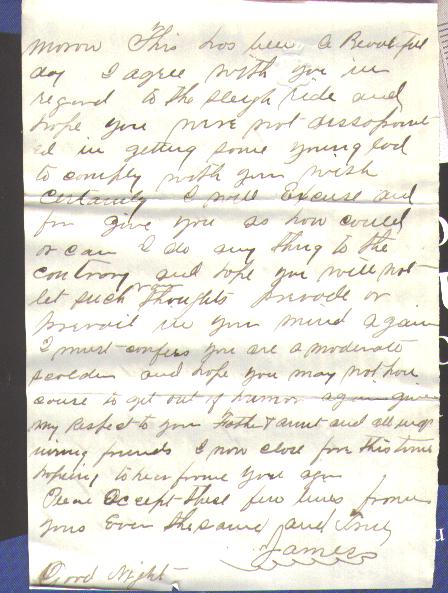 morow This has been a Beautiful
day I agree with you in
regard to the sleigh Ride and
hope you were not dissapoint
ed in getting some young lad
to comply with your wish
certainly I will Excuse and
for give you as how could
or can I do any thing to the
controry and hope you will not
let such vain thoughts pervade or
prevail in your mind again
I must confess you are a moderate
scolder and hope you may not have
couse to get out of humor again give
my Respect to your Father & aunt and all
friends I now close for this time
hopeing to hear frome you again
Please Except these few lines frome
yours Ever the same and True
James
Good Night